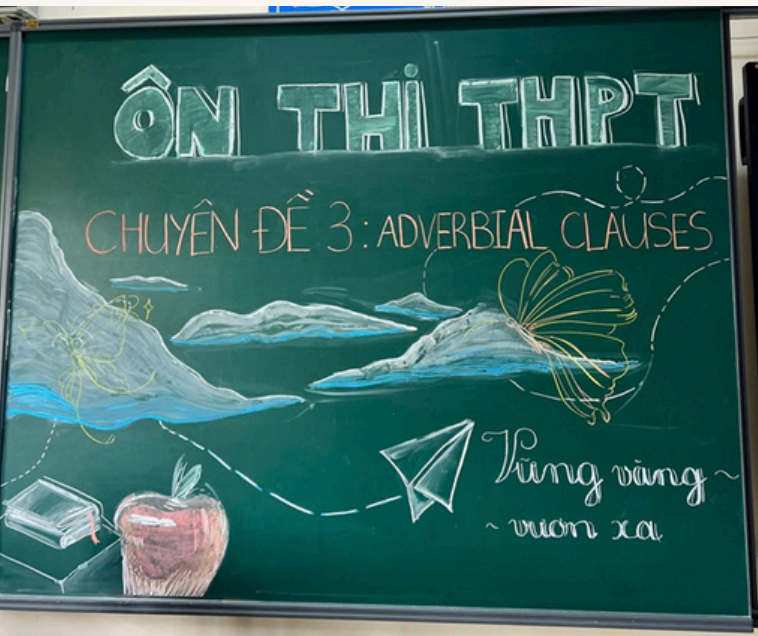 ÔN THI THPT
CHUYÊN ĐỀ 3: ADVERBIAL CLAUSES
Vững vàng ~
~ vươn xa